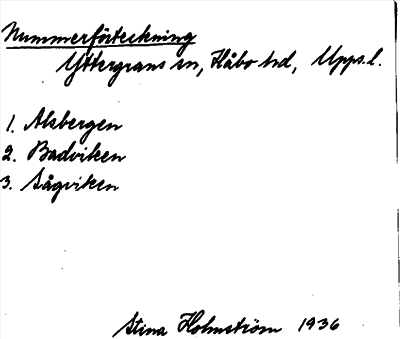 Nummerförteckning
Yttergrans sn, Håbo hd, Upps.l.
1. Alsbergen
2. Badviken
3. Sågviken
Stina Holmström 1936